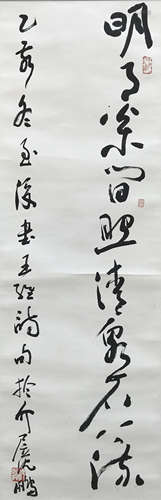 明月松間照清泉石上流
乙亥冬至後書王維詩句於介居沈鵬